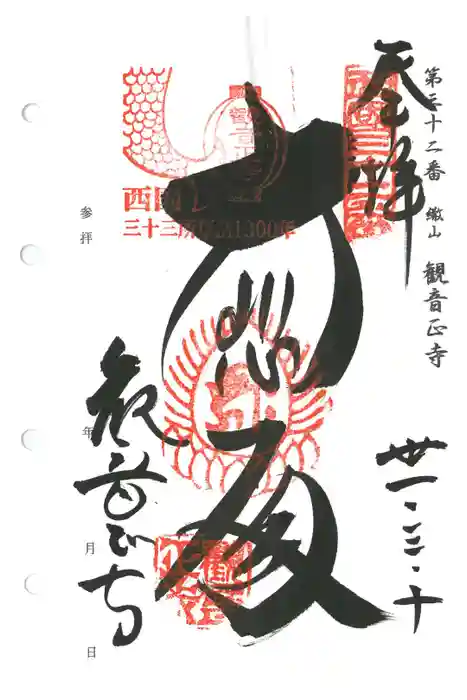 第三十二番 繖山 観音正寺
奉拝
卅一・三・十
大悲殿
観音正寺
西国
三十三所草創1300年
参拝
年
月
日